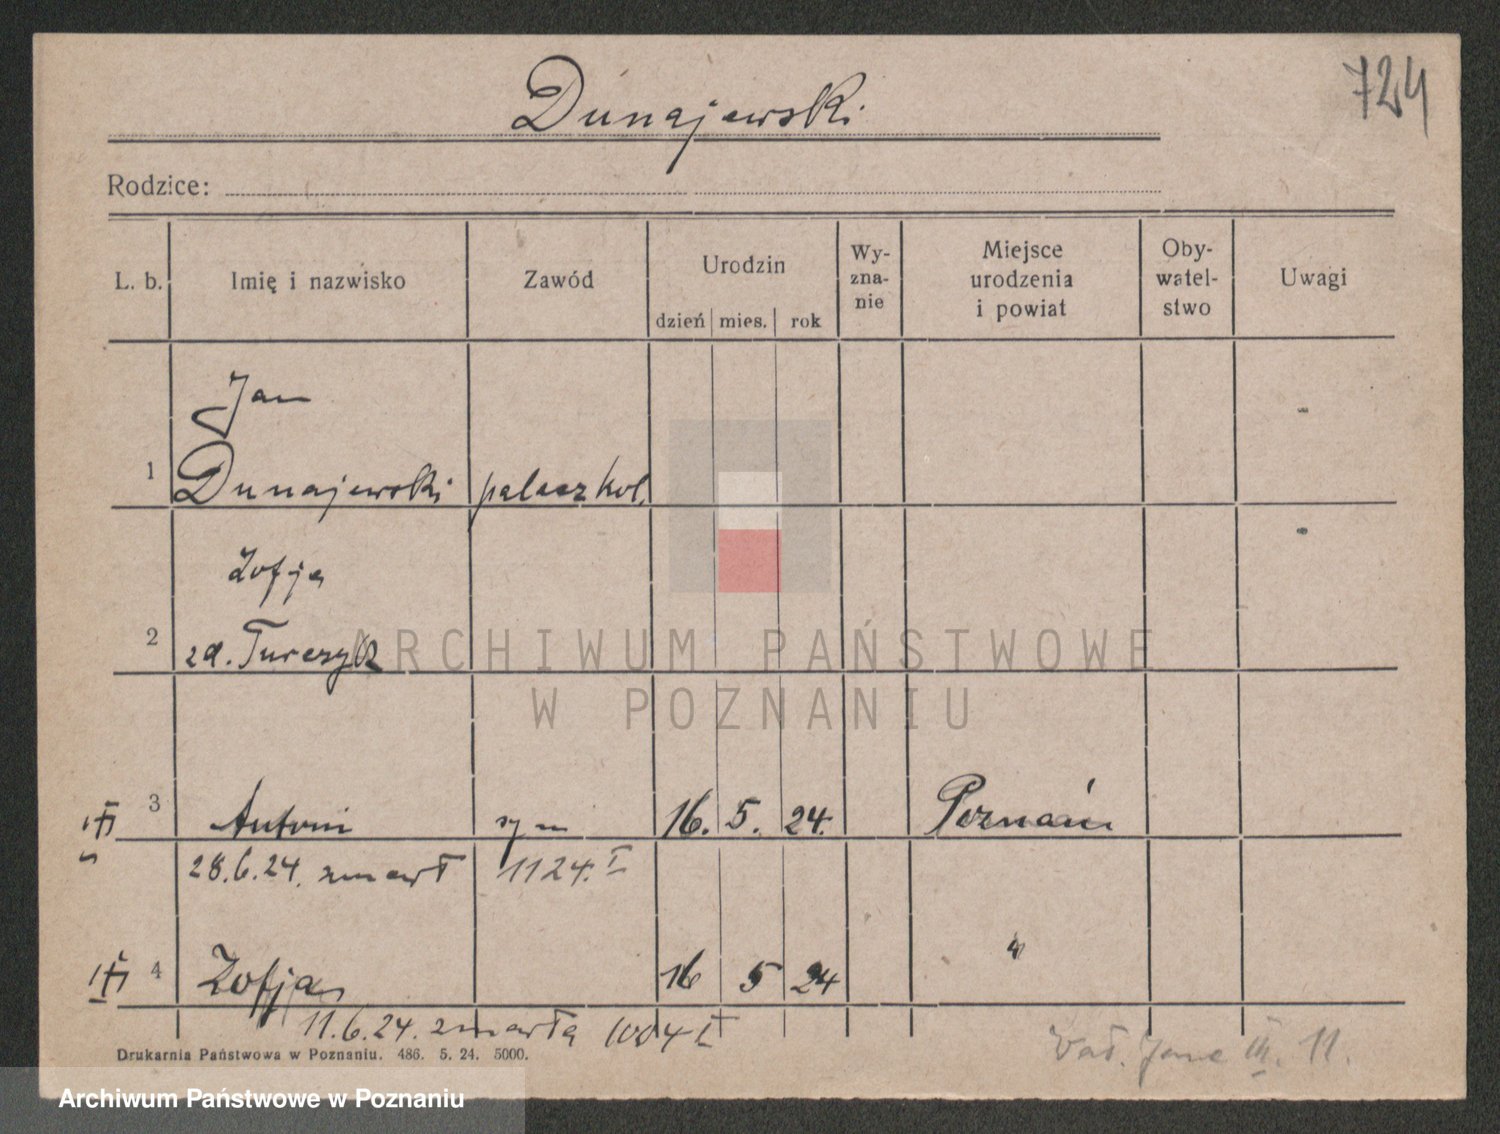 Dunajewski
724
Rodzice:
L. b.
Imię i nazwisko
Zawód
Urodzin
dzień mies. rok
Wy-
zna-
nie
Miejsce
urodzenia
i powiat
Oby-
watel-
stwo
Uwagi
Jan
1 Dunajewski palacz kol.
Zofja
2 zd. Turczyk
3 Antoni syn 16. 5. 24. Poznań
28.6.24. zmarł 1124. I
4 Zofja 16 5 24 "
11.6.24. zmarła 1004 I
Drukarnia Państwowa w Poznaniu. 486. 5. 24. 5000.
III. 11.
ARCHIWUM PAŃSTWOWE
W POZNANIU
Archiwum Państwowe w Poznaniu